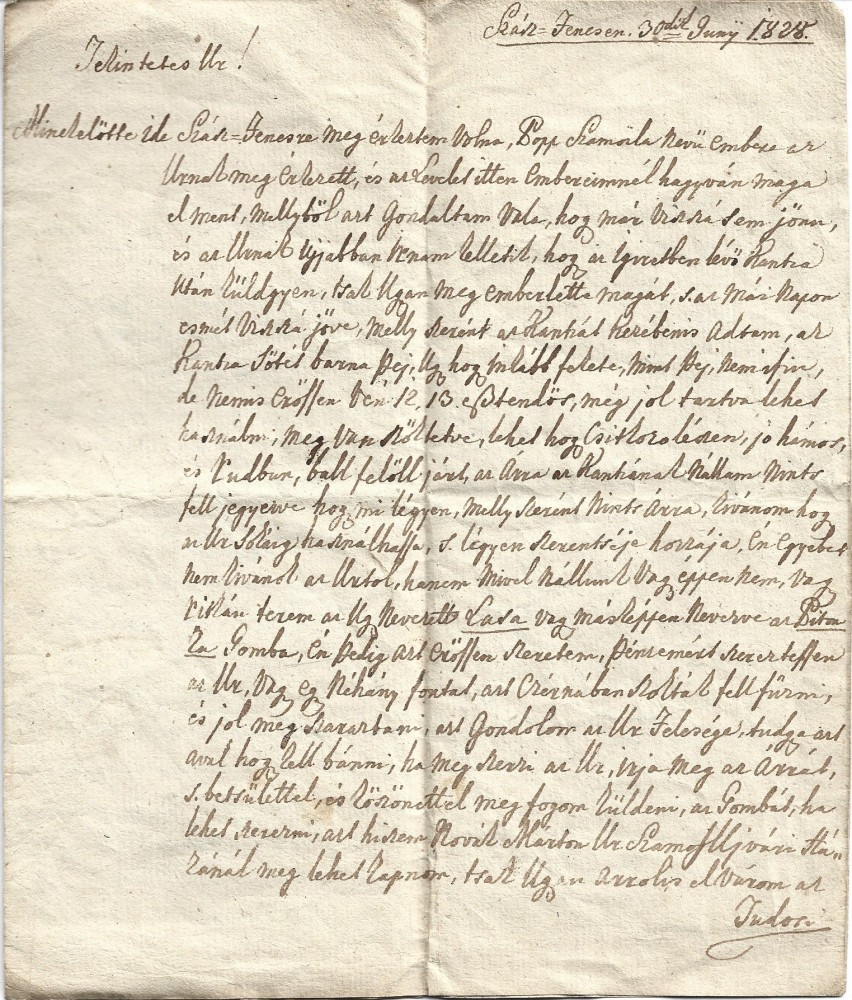 Szász=Fenesen. 30dik Junÿ 1828.
Tekintetes Ur!
Minekelötte ide Szász=Fenesre meg érkeztem volna, Popp Szamoila nevü Embere az
Urnak meg érkezett, és az Levelet itten Embereimnél hagyván maga
el ment, mellyböl azt Gondoltam vala, hogy már viszszá sem jönn,
és az Urnak Ujjabban irnam kelletik, hogy az igiretben lévö Kantza
után küldgyen, tsak Ugyan meg emberlette magát, s. az mái Napon
esmét viszszá jöve, melly szerént az Kantzát kezébenis adtam, az
Kantza Sötét barna Pej, Ugy hogy inkább fekete, mint Pej, nem ifiu,
de nemis Erössen Vén 12, 13. esztendös, még jol tartva lehet
használni, meg van szöktetve, lehet hogy Csitkozo lészen, jo hámos,
és rudban, ball felöll járt, az Árra az Kantzának Nállam Nints
fell jegyezve hogy mi légyen, melly szerént Nints Árra, kivánom hogy
az Ur Sokáig használhassa, s. légyen szerentséje hozzája, Én Egyebet
nem kivánok az Urtol, hanem mivel Nállunk Vagy éppen nem, vagy
ritkán terem az Ugy Nevezett Lasa vagy másképpen Nevezve az Piton
ka Gomba, Én pedig azt Erössen szeretem, Pénzemért szerezteffen
az Ur, Vagy egy Néhány fontat, azt Czérnában szokták fell füzni,
és jol meg szárasztani, azt Gondolom az Ur Felesége, tudgya azt
aval hogy kell bánni, ha meg szerzi az Ur, irja meg az Árrát,
s. betsülettel, és köszönettel meg fogom küldeni, az Gombát, ha
lehet szerezni, azt hiszem Novák Márton Ur Szamos Ujvári Há=
zánál meg lehet kapnom, tsak Ugyan arrolis el várom az
Tudosi